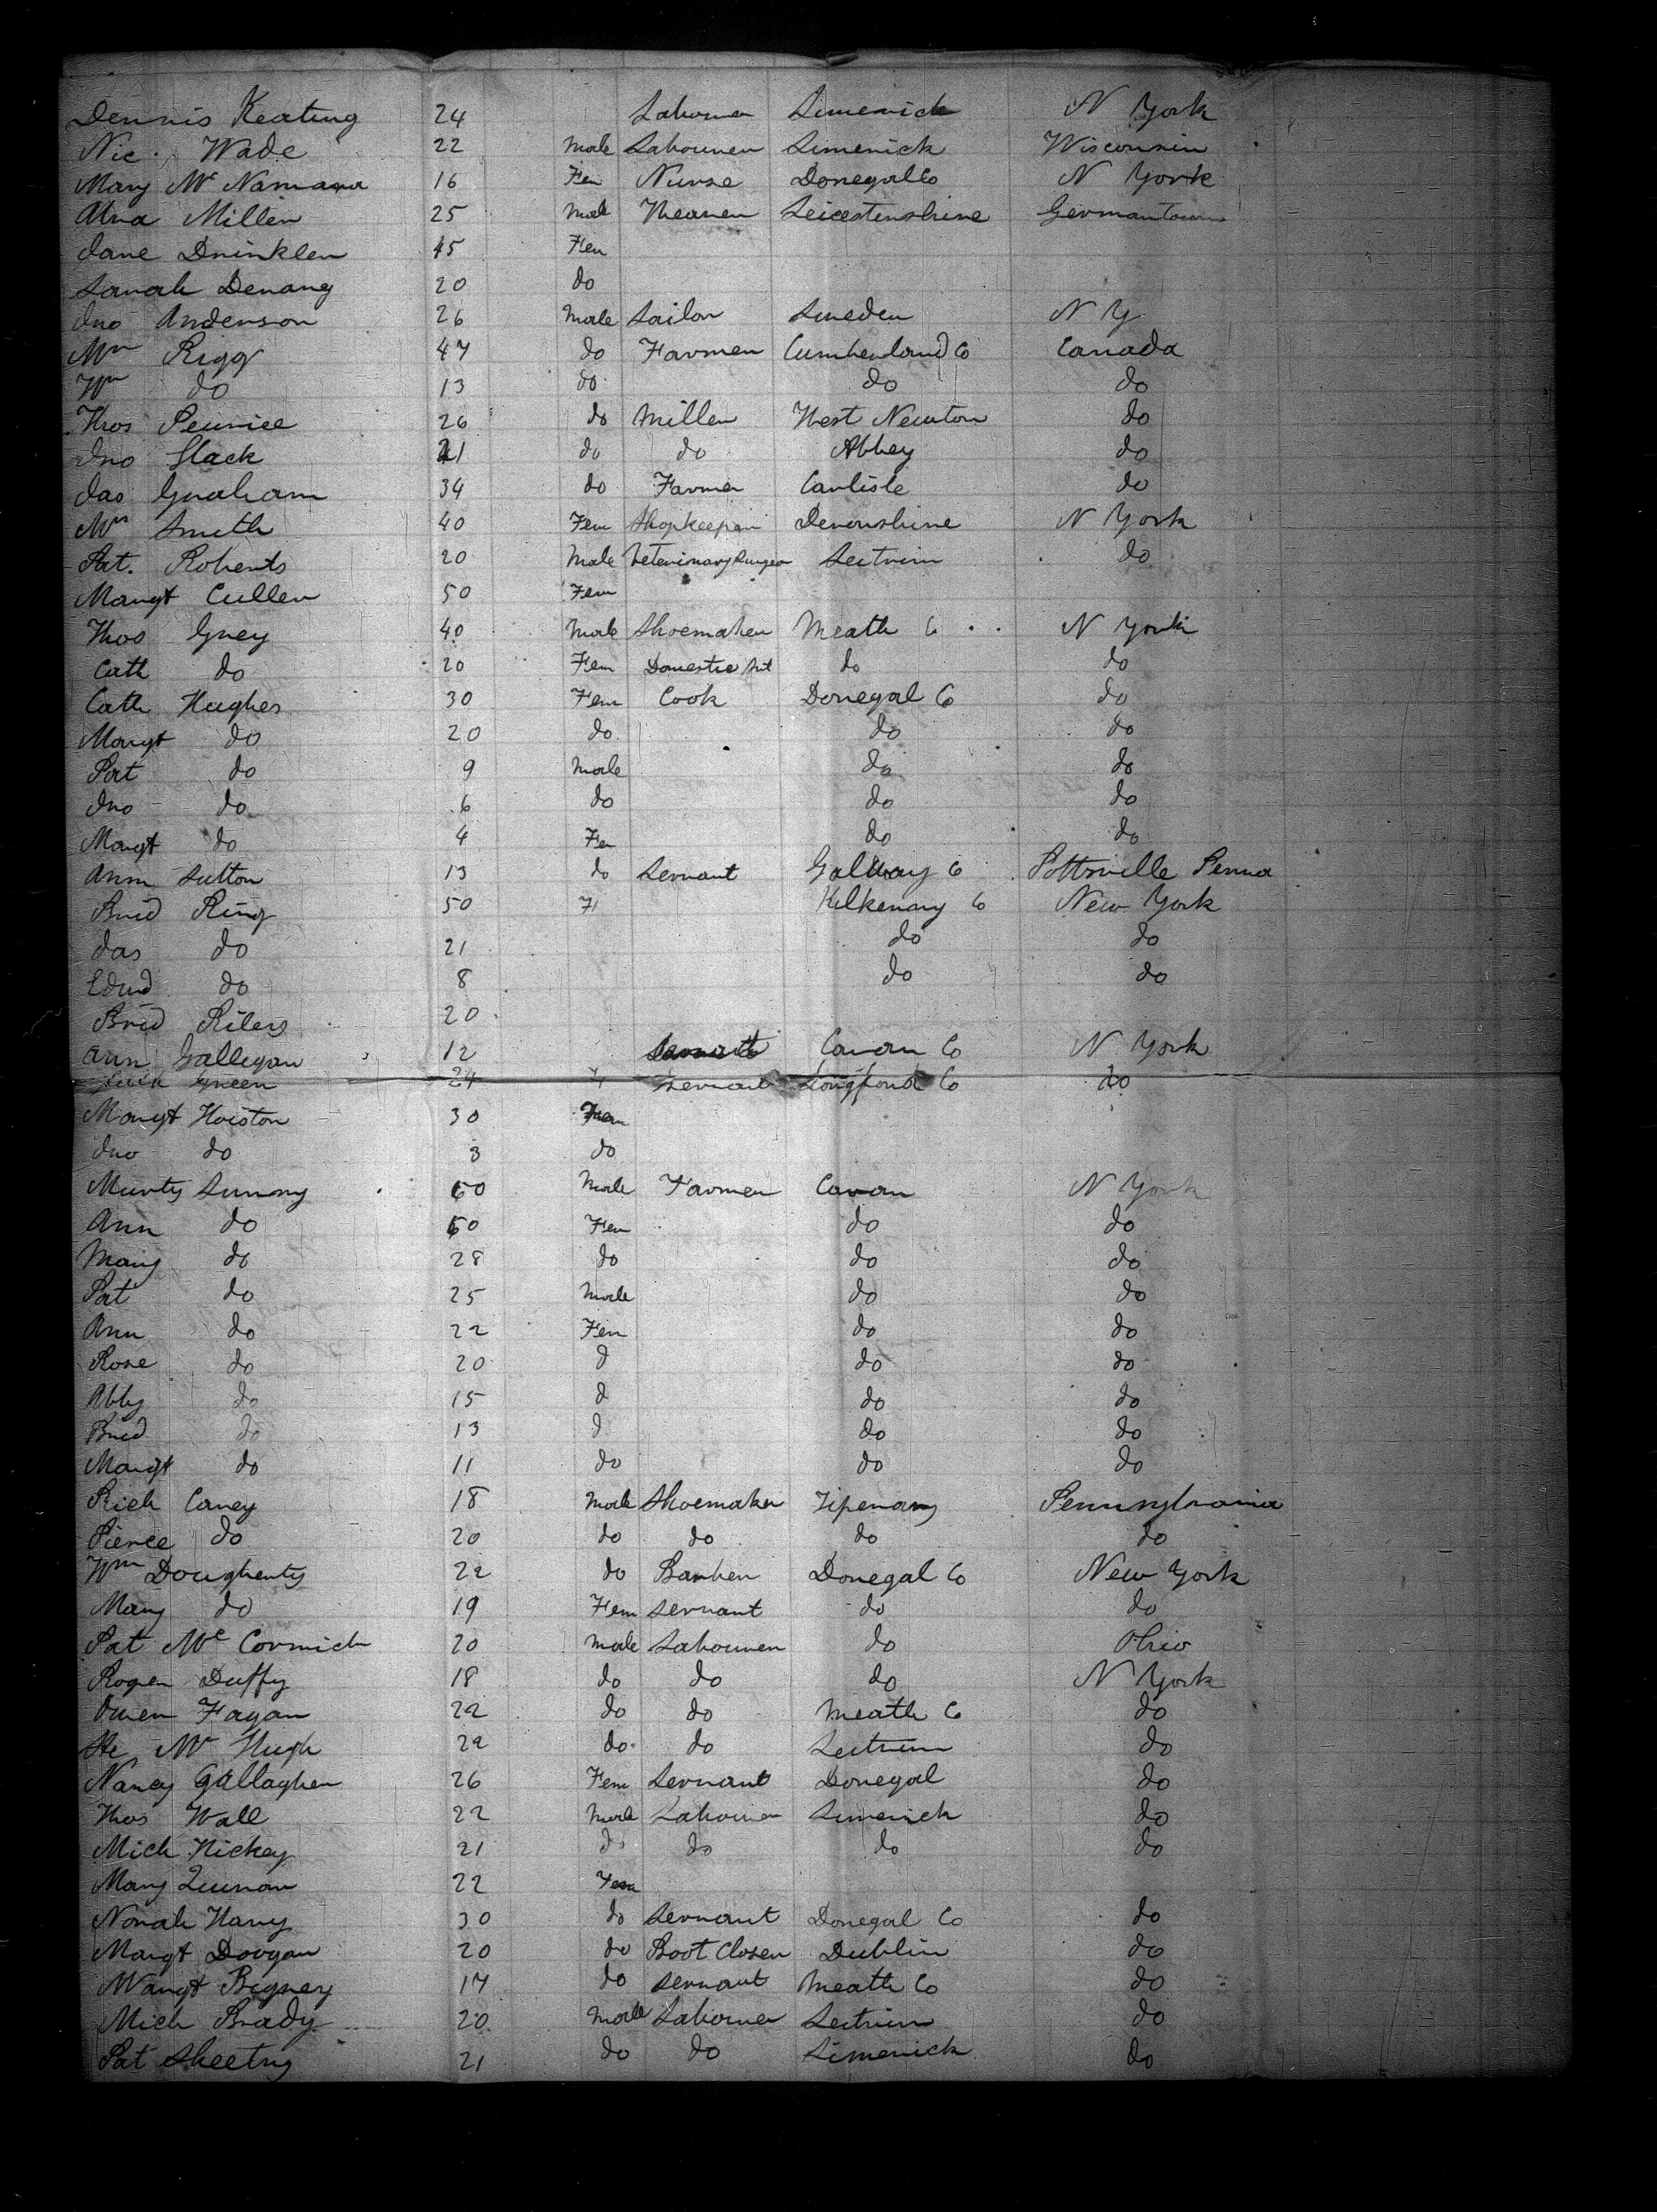 Dennis Keating 24 Labourer Limerick N York
Nic. Wade 22 Male Labourer Limerick Wisconsin
Mary Mc Namara 16 Fem Nurse Donegal Co N York
Miller 25 Male Weaver Leicestershire Germantown
Jane Drinkler 45 Fem
Sarah 20 do
Jno Anderson 26 Male Sailor Sweden N Y
Wm Rigg 47 do Farmer Cumberland Co Canada
Wm do 13 do do do
Thos 26 do Miller West Newton do
Jno Slack 21 do do Abbey do
Jas Graham 34 do Farmer Carlisle do
Mrs Smith 40 Fem Shopkeeper Devonshire N York
Pat. Roberts 20 Male Veterinary Surgeon Leitrim do
Margt Cullen 50 Fem
Thos Grey 40 Male Shoemaker Meath Co N York
Cath do 20 Fem Domestic Svt do do
Cath Hughes 30 Fem Cook Donegal Co do
Margt do 20 do do do
Pat do 9 Male do do
Jno do 6 do do do
Margt do 4 Fem do do
Ann Sutton 13 do Servant Galway Co Pottsville Penna
Brid Ring 50 F Kilkenny Co New York
Jas do 21 do do
Edwd do 8 do do
Brid 20
Ann Gallegan 12 Servant Cavan Co N York
Green 24 F Servant Longford Co do
Margt Hoiston 30 Fem
Jno do 3 do
Murty Sunny 60 Male Farmer Cavan N York
Ann do 60 Fem do do
Mary do 28 do do do
Pat do 25 Male do do
Ann do 22 Fem do do
Rose do 20 d do do
Abby do 15 d do do
Brid do 13 d do do
Margt do 11 do do do
Rich Carey 18 Male Shoemaker Tiperary Pennsylvania
Pierce do 20 do do do do
Wm Dougherty 22 do Barber Donegal Co New York
Mary do 19 Fem Servant do do
Pat Mc Cormick 20 Male Labourer do Ohio
Roger Duffy 18 do do do N York
Owen Fagan 22 do do Meath Co do
Mc Hugh 22 do do Leitrim do
Nancy Gallagher 26 Fem Servant Donegal do
Thos Wall 22 Male Labourer Limerick do
Mich Hickey 21 do do do do
Mary 22 Fem
Norah Harry 30 do Servant Donegal Co do
Margt Doogan 20 do Boot Closer Dublin do
Margt Bigney 17 do Servant Meath Co do
Mich Brady 20 Male Labourer Leitrim do
Pat Sheetry 21 do do Limerick do